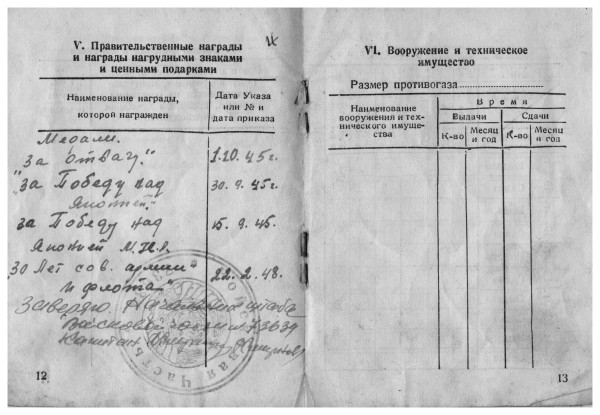 V. Правительственные награды
и награды нагрудными знаками
и ценными подарками
Наименование награды,
которой награжден
Дата Указа
или № и
дата приказа
Медали.
За отвагу."
1.10.45г.
"за Победу над
Японией.
30.9.45г.
за Победу над
Японией М.Н.Р.
15.9.45.
"30 Лет сов. армии
и флота"
22.2.48.
Заверяю. Начальник штаба
Войсковой части
Капитан
12
VI. Вооружение и техническое
имущество
Размер противогаза
Наименование
вооружения и тех-
нического имуще-
ства
Время
Выдачи
Сдачи
К-во
Месяц
и год
К-во
Месяц
и год
13